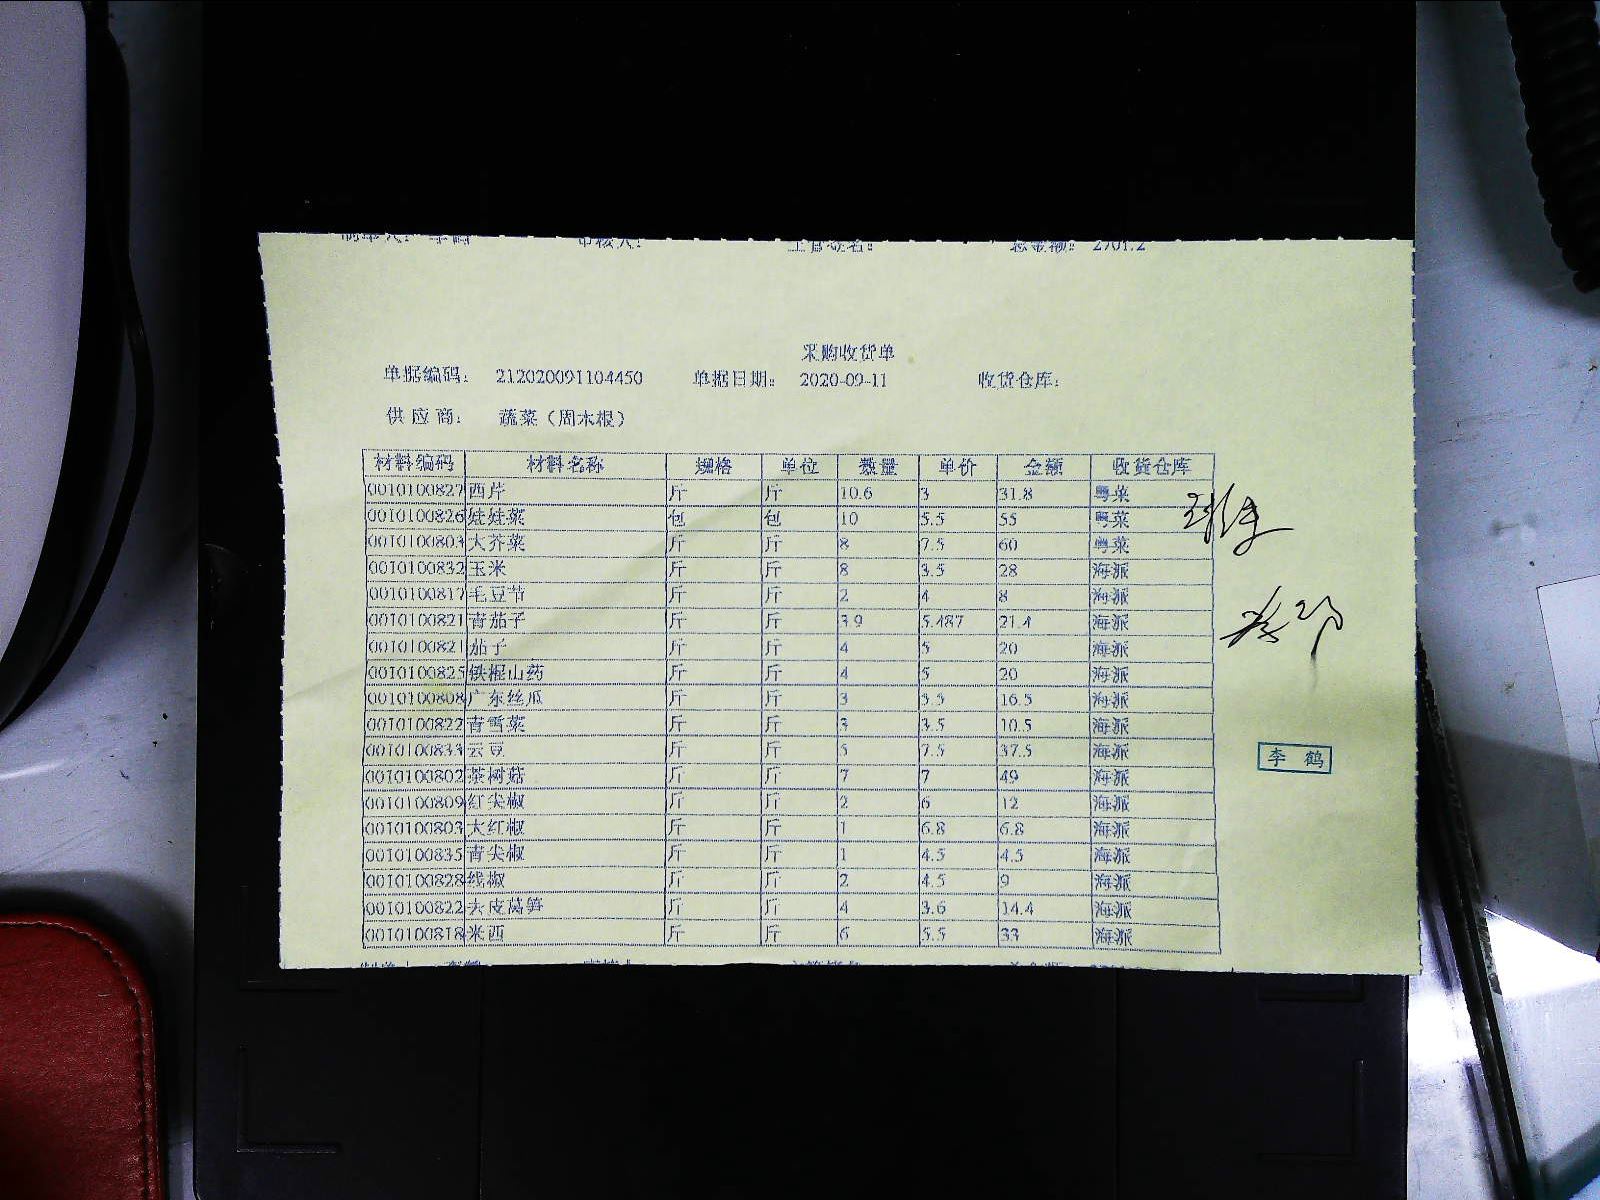 总金额: 2701.2
采购收货单
单据编码: 212020091104450 单据日期: 2020-09-11 收货仓库:
供应商: 蔬菜（周木根）
材料编码 材料名称 规格 单位 数量 单价 金额 收货仓库
0010100827 西芹 斤 斤 10.6 3 31.8 粤菜
0010100826 娃娃菜 包 包 10 5.5 55 粤菜
0010100803 大芥菜 斤 斤 8 7.5 60 粤菜
0010100832 玉米 斤 斤 8 3.5 28 海派
0010100817 毛豆节 斤 斤 2 4 8 海派
0010100821 青茄子 斤 斤 3.9 5.487 21.4 海派
0010100821 茄子 斤 斤 4 5 20 海派
0010100825 铁棍山药 斤 斤 4 5 20 海派
0010100808 广东丝瓜 斤 斤 3 5.5 16.5 海派
0010100822 青雪菜 斤 斤 3 3.5 10.5 海派
0010100833 云豆 斤 斤 5 7.5 37.5 海派
0010100802 茶树菇 斤 斤 7 7 49 海派
0010100809 红尖椒 斤 斤 2 6 12 海派
0010100803 大红椒 斤 斤 1 6.8 6.8 海派
0010100835 青尖椒 斤 斤 1 4.5 4.5 海派
0010100828 线椒 斤 斤 2 4.5 9 海派
0010100822 去皮莴笋 斤 斤 4 3.6 14.4 海派
0010100818 米西 斤 斤 6 5.5 33 海派
李鹤